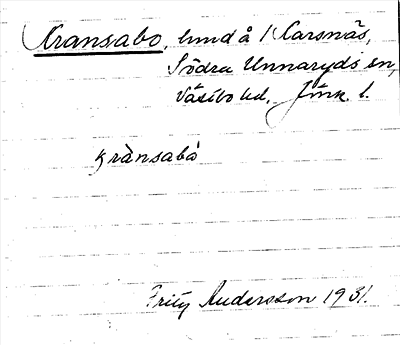 Kransabo, lund å Karsnäs,
Södra Unnaryds sn,
Västbo hd. Jönk. l.
krànsabò
Fritz Andersson 1931.